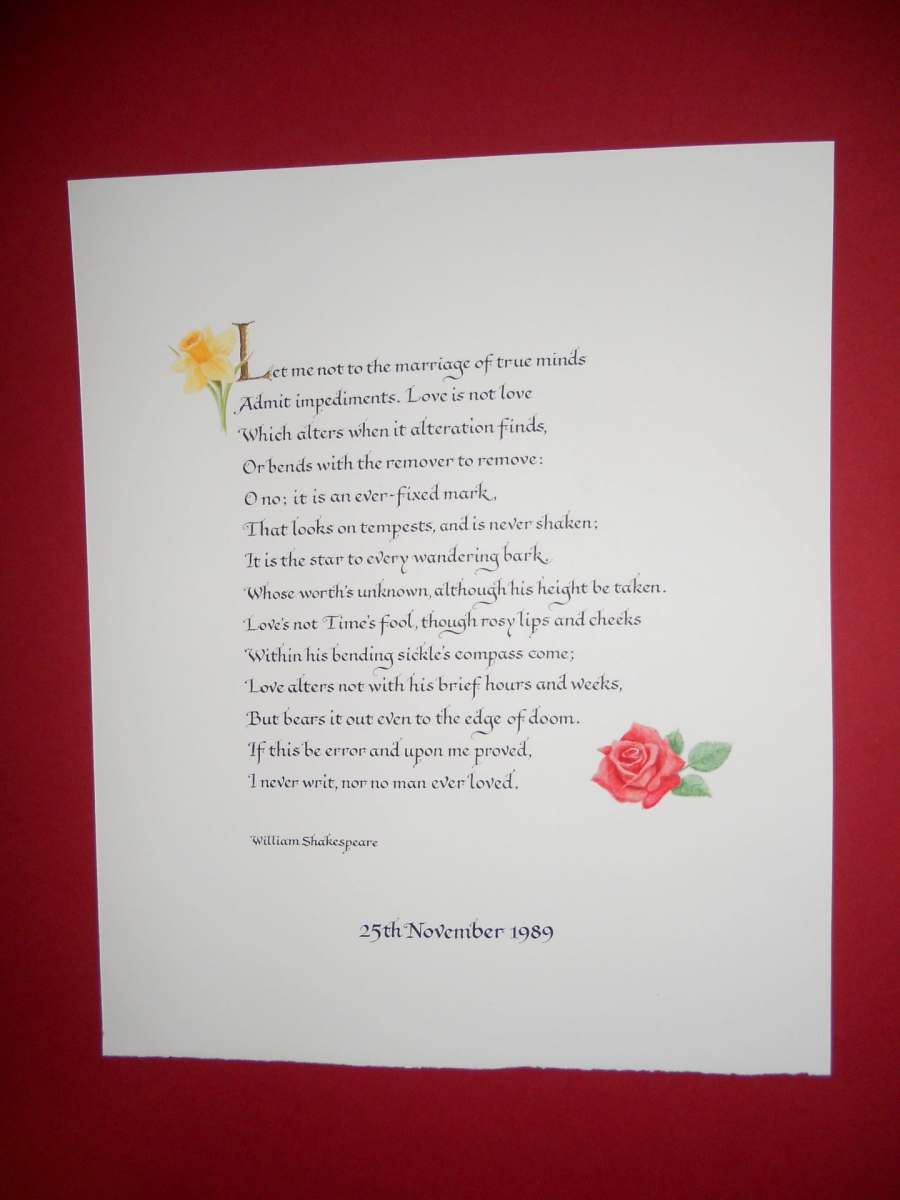 Let me not to the marriage of true minds
Admit impediments. Love is not love
Which alters when it alteration finds,
Or bends with the remover to remove:
O no; it is an ever-fixed mark,
That looks on tempests, and is never shaken;
It is the star to every wandering bark,
Whose worth's unknown, although his height be taken.
Love's not Time's fool, though rosy lips and cheeks
Within his bending sickle's compass come;
Love alters not with his brief hours and weeks,
But bears it out even to the edge of doom.
If this be error and upon me proved,
I never writ, nor no man ever loved.
William Shakespeare
25th November 1989